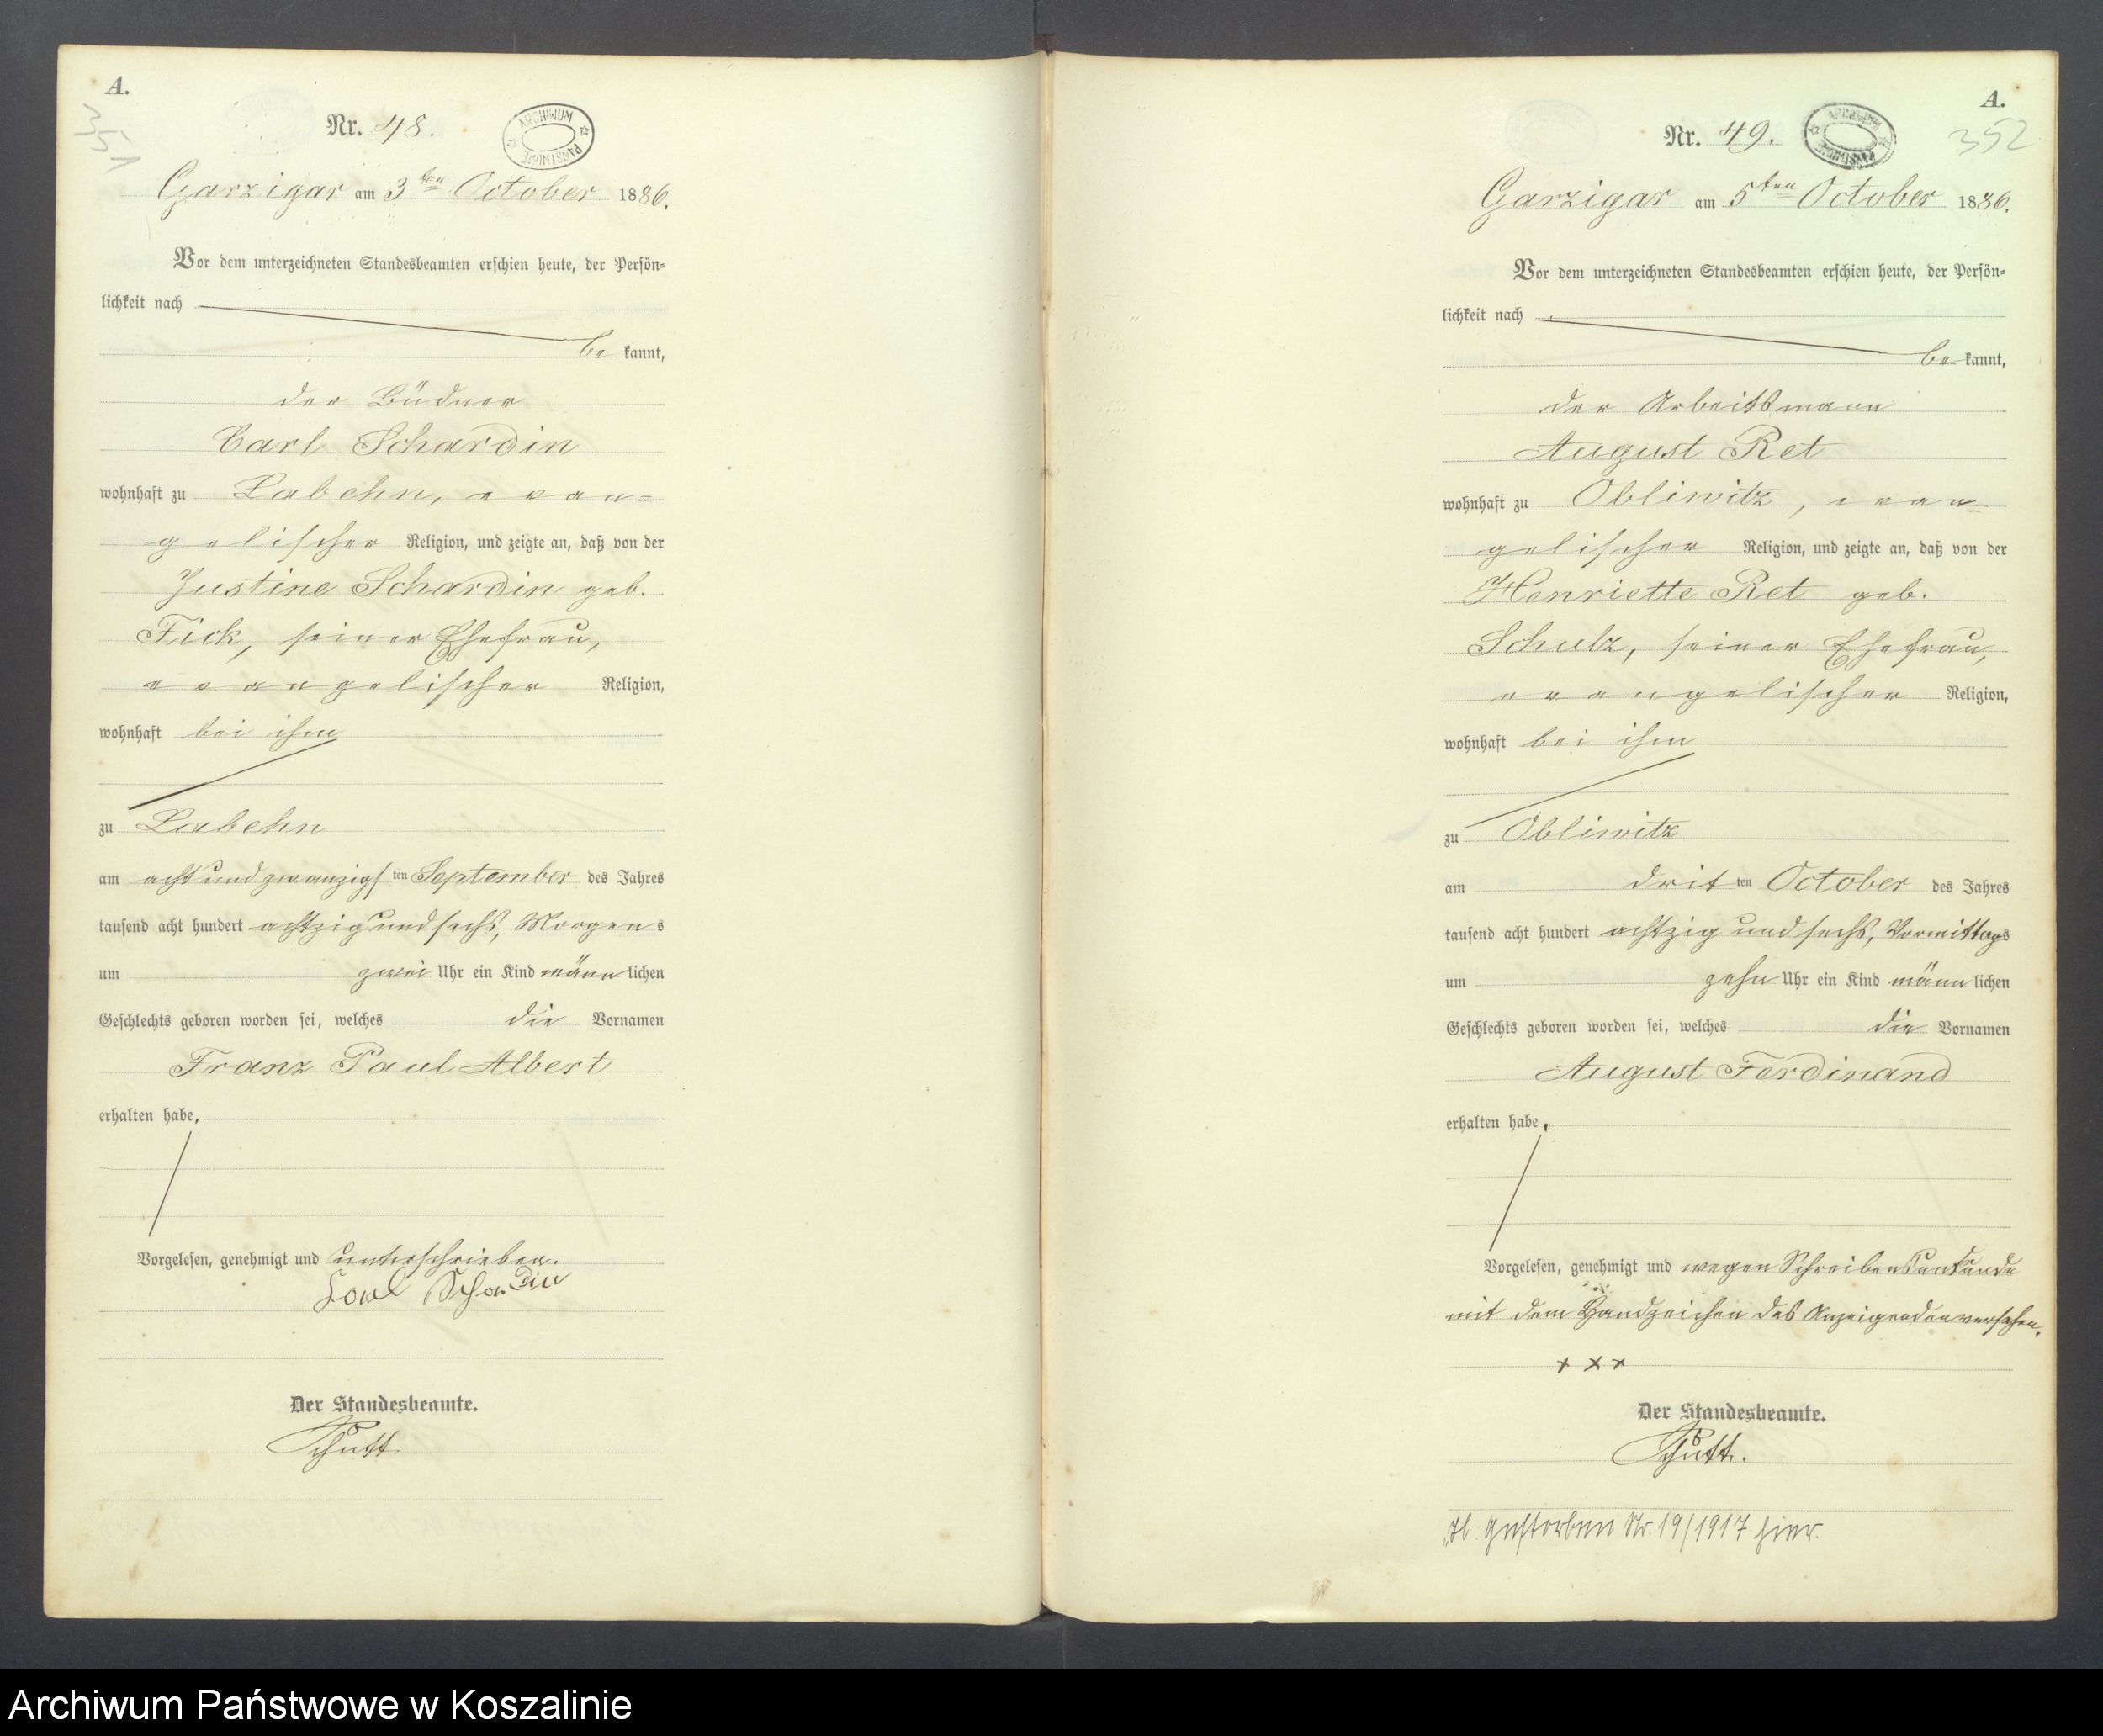 A.
351
Nr. 48.
ARCHIWUM PAŃSTWOWE
Garzigar am 3ten October 1886.
Vor dem unterzeichneten Standesbeamten erschien heute, der Persön-
lichkeit nach
be kannt,
der Büdner
Carl Schardin
wohnhaft zu Labehn, evan-
gelischer Religion, und zeigte an, daß von der
Justine Schardin geb.
Fick, seiner Ehefrau,
evangelischer Religion,
wohnhaft bei ihm
zu Labehn
am acht und zwanzigsten September des Jahres
tausend acht hundert achtzig und sechs, Morgens
um zwei Uhr ein Kind männlichen
Geschlechts geboren worden sei, welches die Vornamen
Franz Paul Albert
erhalten habe.
Vorgelesen, genehmigt und unterschrieben.
Carl Schardin
Der Standesbeamte.
Schütt.
A.
352
Nr. 49.
ARCHIWUM PAŃSTWOWE
Garzigar am 5ten October 1886.
Vor dem unterzeichneten Standesbeamten erschien heute, der Persön-
lichkeit nach
be kannt,
der Arbeitsmann
August Ret
wohnhaft zu Obliwitz, evan-
gelischer Religion, und zeigte an, daß von der
Henriette Ret geb.
Schulz, seiner Ehefrau,
evangelischer Religion,
wohnhaft bei ihm
zu Obliwitz
am dritten October des Jahres
tausend acht hundert achtzig und sechs, Vormittags
um zehn Uhr ein Kind männlichen
Geschlechts geboren worden sei, welches die Vornamen
August Ferdinand
erhalten habe.
Vorgelesen, genehmigt und wegen Schreibensunkunde
mit dem Handzeichen des Anzeigenden versehen.
+ + +
Der Standesbeamte.
Schütt.
gestorben Nr. 19/1917 hier.
Archiwum Państwowe w Koszalinie